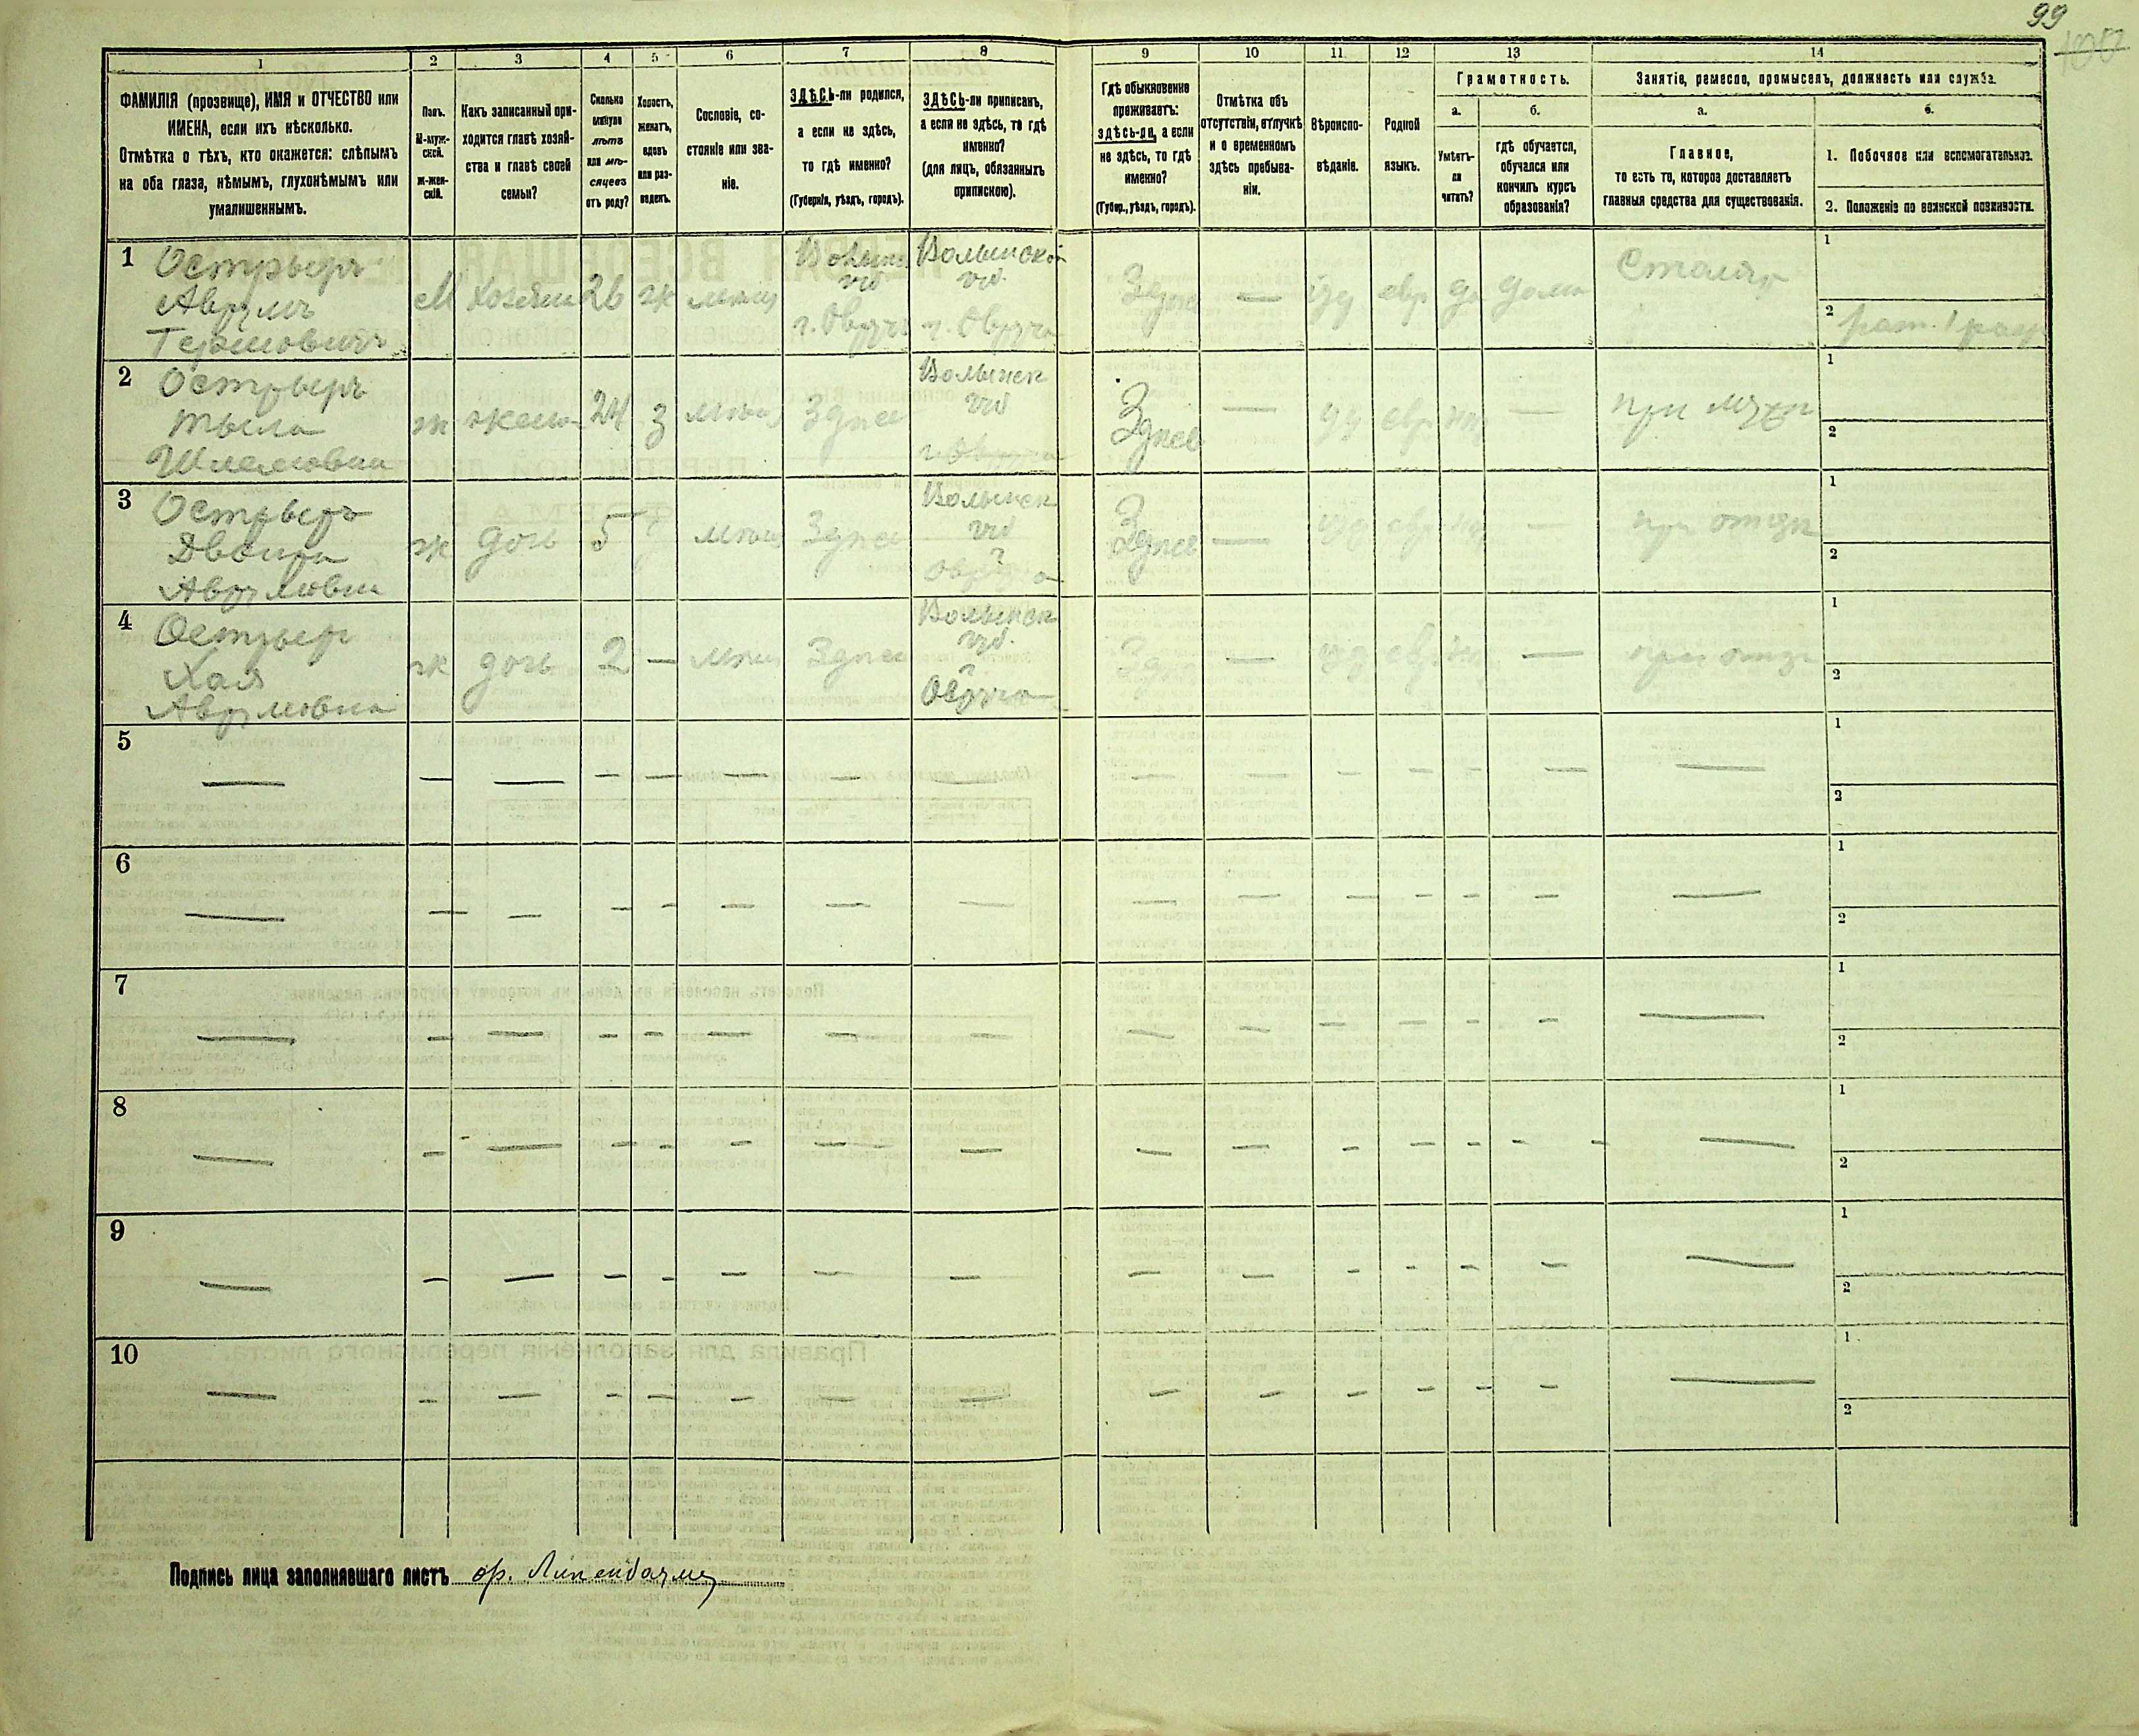 99
100
1
2
3
4
5
6
7
8
9
10
11
12
13
14
ФАМИЛІЯ (прозвище), ИМЯ и ОТЧЕСТВО или
ИМЕНА, если ихъ нѣсколько.
Отмѣтка о тѣхъ, кто окажется: слѣпымъ
на оба глаза, нѣмымъ, глухонѣмымъ или
умалишеннымъ.
Полъ.
М-муж-
ской.
Ж-жен-
скій.
Какъ записанный при-
ходится главѣ хозяй-
ства и главѣ своей
семьи?
Сколько
минуло
лѣтъ
или мѣ-
сяцевъ
отъ роду?
Холостъ,
женатъ,
вдовъ
или раз-
веденъ.
Сословіе, со-
стояніе или зва-
ніе.
ЗДѢСЬ-ли родился,
а если не здѣсь,
то гдѣ именно?
(Губернія, уѣздъ, городъ).
ЗДѢСЬ-ли приписанъ,
а если не здѣсь, то гдѣ
именно?
(для лицъ, обязанныхъ
припискою).
Гдѣ обыкновенно
проживаетъ:
здѣсь-ли, а если
не здѣсь, то гдѣ
именно?
(Губер., уѣздъ, городъ).
Отмѣтка объ
отсутствіи, отлучкѣ
и о временномъ
здѣсь пребыва-
ніи.
Вѣроиспо-
вѣданіе.
Родной
языкъ.
Грамотность.
а.
б.
Умѣетъ-
ли
читать?
гдѣ обучается,
обучался или
кончилъ курсъ
образованія?
Занятіе, ремесло, промыселъ, должность или служба.
а.
б.
Главное,
то есть то, которое доставляетъ
главныя средства для существованія.
1. Побочное или вспомогательное.
2. Положеніе по воинской повинности.
1 Острыеръ
Аврумъ
М хозяин 26 ж мѣщ
Волынск
губ
г. Овручъ
Волынской
губ.
г. Овруча
Здѣсь — іуд евр да дома
Столяр
1
2 рат. 1 разр
2 Острыеръ
Шлемовна
ж жена 24 з мѣщ Здѣсь
Волынск
губ
г. Овруча
Здѣсь — іуд евр нѣт —
при мужѣ
1
2
3 Острыеръ
Двойра
Аврумовна
ж дочь 5 мѣщ Здѣсь
Волынск
губ
г
Овруча
Здѣсь — іуд евр нѣт —
при отцѣ
1
2
4 Острыер
Хая
Аврумовна
ж дочь 2 — мѣщ Здѣсь
Волынск
губ.
г
Овруча
Зд — іуд евр нѣт —
при отцѣ
1
2
5 — — — — — — — — — — — — — — —
1
2
6 — — — — — — — — — — — — — — —
1
2
7 — — — — — — — — — — — — — — —
1
2
8 — — — — — — — — — — — — — — —
1
2
9 — — — — — — — — — — — — — — —
1
2
10 — — — — — — — — — — — — — — —
1
2
Подпись лица заполнявшаго листъ